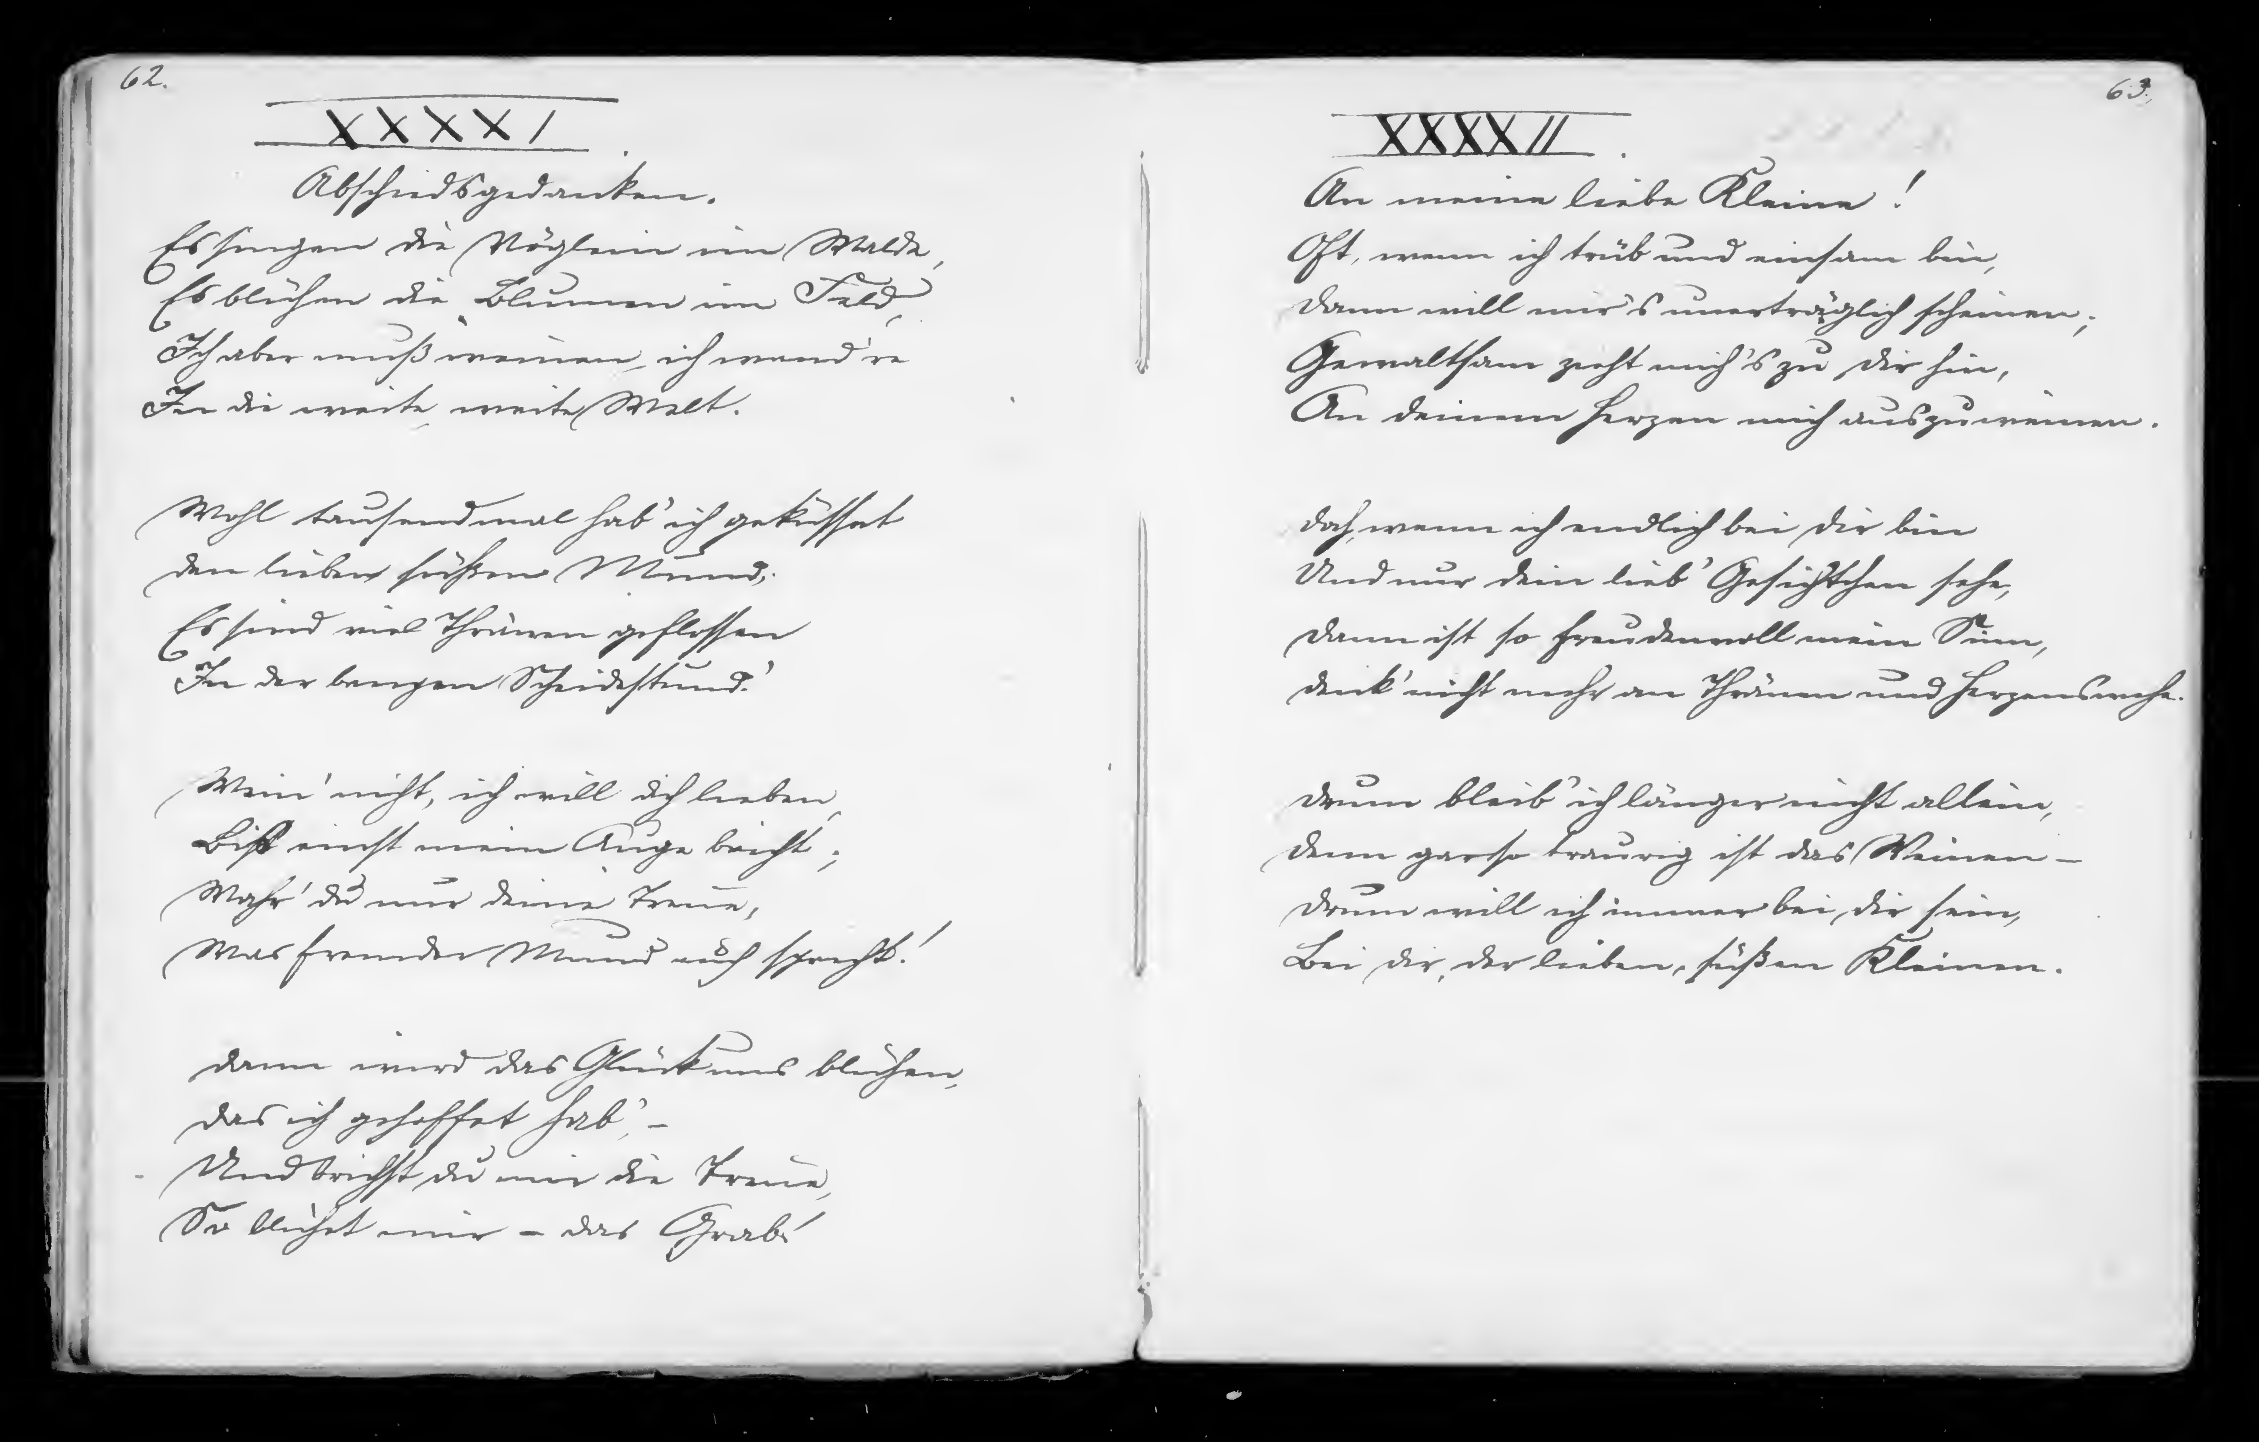 62.
XXXXI.
Abschiedsgedanken.
Es singen die Vöglein im Walde,
Es blühen die Blumen im Feld,
Ich aber muß weinen, ich wand're
In die weite, weite Welt.
Wohl tausendmal hab' ich geküsset
Den lieben süßen Mund;
Es sind viel Thränen geflossen
In der bangen Scheidestund'.
Wein' nicht, ich will dich lieben,
Bis einst mein Auge bricht;
Wahr' du nur deine Treue,
Was fremder Mund auch spricht!
Dann wird das Glück uns blühen,
Das ich gehoffet hab', –
Und brichst du mir die Treue,
So blühet mir – das Grab!
63.
XXXXII.
An meine liebe Kleine!
Oft, wenn ich trüb und einsam bin,
Dann will mir's unerträglich scheinen;
Gewaltsam zieht mich's zu dir hin,
An deinem Herzen mich auszuweinen.
Doch, wenn ich endlich bei dir bin
Und nur dein lieb' Gesichtchen sehe,
Dann ist so freudenvoll mein Sinn,
Denk' nicht mehr an Thränen und Herzenswehe.
Drum bleib' ich länger nicht allein,
Denn gar so traurig ist das Weinen –
Drum will ich immer bei dir sein,
Bei dir, der lieben, süßen Kleinen.